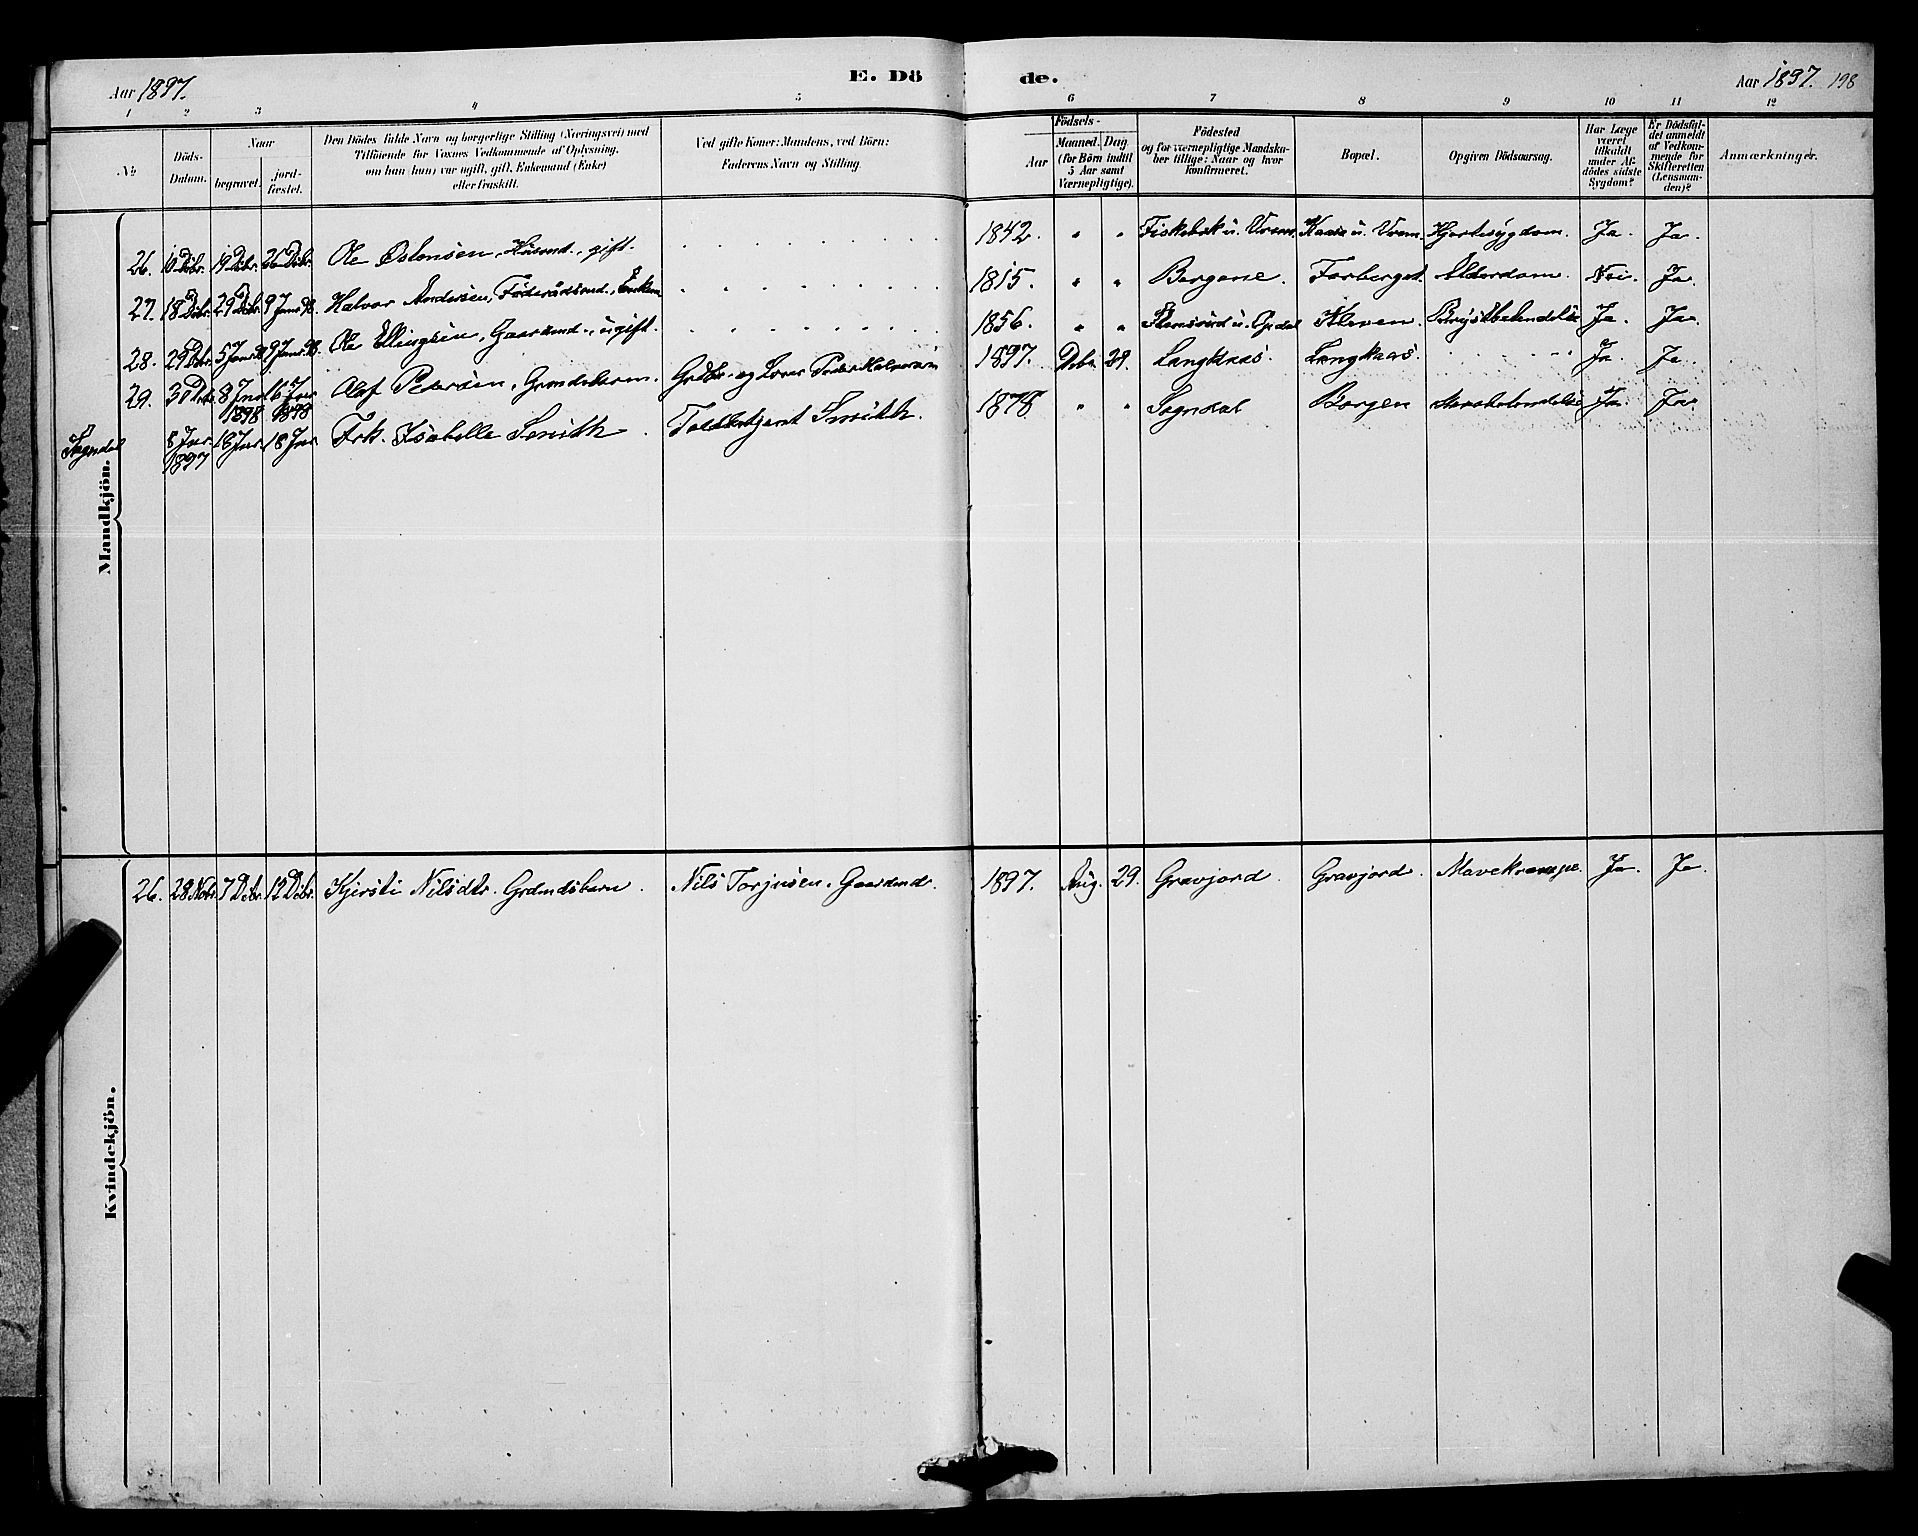 Aar 1897.
E. Dö
de.
Aar 1897. 198
1 2 3 4 5 6 7 8 9 10 11 12
№
Döds-
Datum.
Naar
begravet.
jord-
fæstet.
Den Dödes fulde Navn og borgerlige Stilling (Næringsvei) med
Tilföiende for Voxnes Vedkommende af Oplysning,
om han (hun) var ugift, gift, Enkemand (Enke)
eller fraskilt.
Ved gifte Koner: Mandens, ved Börn:
Faderens Navn og Stilling.
Födsels-
Aar
Maaned. Dag
(for Börn indtil
5 Aar samt
Værnepligtige).
Födested
og for værnepligtige Mandska-
ber tillige: Naar og hvor
konfirmeret.
Bopæl.
Opgiven Dödsaarsag.
Har Læge
været
tilkaldt
under Af-
dödes sidste
Sygdom?
Er Dödsfal-
det anmeldt
af Vedkom-
mende for
Skifteretten
(Lensman-
den)?
Anmærkninger.
Mandkjön.
26. 10 Dcbr. 19 Dcbr. 26 Dcbr. Ole Østensen, Husmd., gift. 1842. " " Fiskebæk u. Vrem. Kaasa u. Vrem. Hjertesygdom. Ja. Ja.
27. 18 Dcbr. 29 Dcbr. 9 Janr 98. Halvor Andersen, Föderaadsmd., Enkem 1815. " " Bergene. Farberget. Alderdom. Nei. Ja.
28. 29 Dcbr. 5 Janr 98 9 Janr 98. Ole Ellingsen, Gaardmd., ugift. 1856. " " u. Opdal Kleven. Brystbetændelse Ja. Ja.
29. 30 Dcbr 8 Jnr 1898 16 Jnr 1898 Olaf Pedersen, Grændsbarn. Grdbr. og Peder Halvorsen 1897. Dcbr. 29. Langkaas. Langkaas. Ja. Ja.
Sogndal 8 Jnr 1897 18 Jnr. 18 Jnr. Frk. Isabelle Smith. Toldbetjent Smith. 1878 " " Sogndal Borgen Ja. Ja.
Kvindekjön.
26. 28 Novbr. 7 Dcbr. 12 Dcbr. Kjersti Nilsdtr. Grdmdsbarn. Nils Torjusen, Gaardmd. 1897. Aug. 29. Gravjord. Gravjord. Mavekrampe. Ja. Ja.